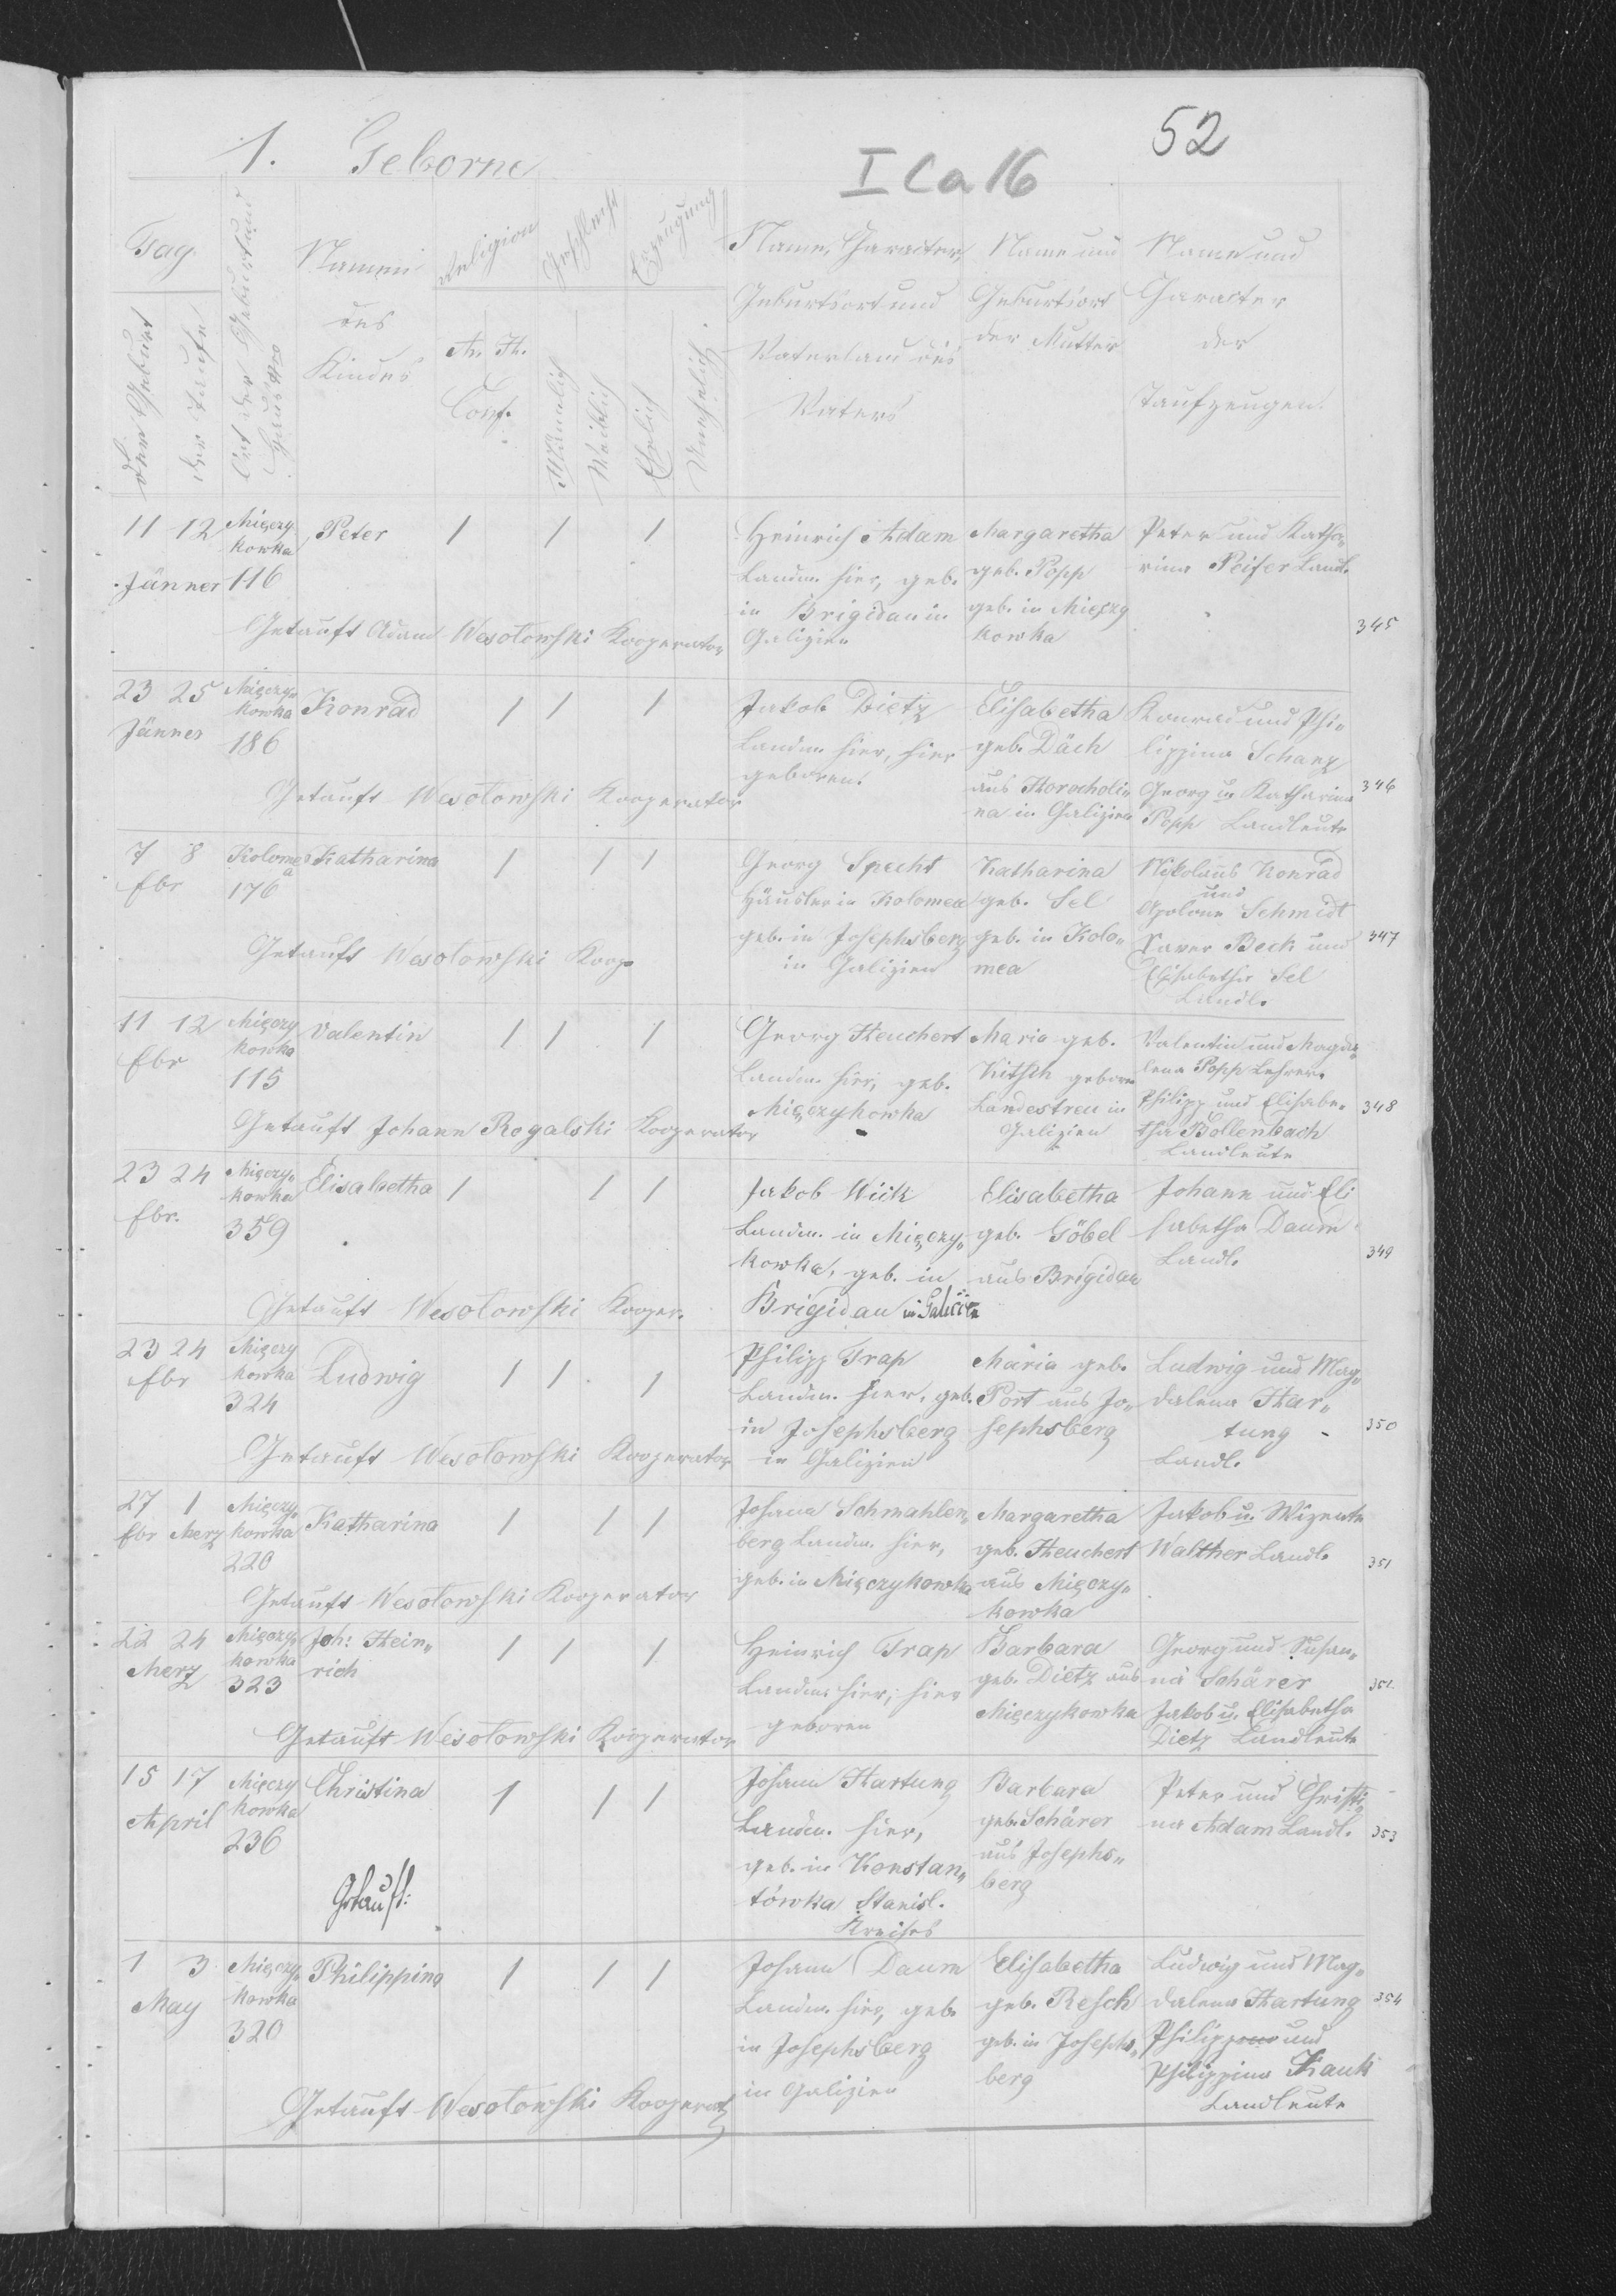 52
1. Geborne
I C a 16
Tag
der Geburt
der Taufe
Ort der Geburt und
Haus Nro
Namen
des
Kindes
Religion
A. K.
Conf.
Geschlecht
Männlich
Weiblich
Erzeugung
Ehelich
Unehelich
Name, Caracter,
Geburtsort und
Vaterland des
Vaters
Name und
Geburtsort
der Mutter
Name und
Caracter
der
Taufzeugen.
11 12 Jänner
Mięczy
kowka
116
Peter / / /
Heinrich Adam
Landm. hier, geb.
in Brigidau in
Galizien
Margaretha
geb. Popp
geb. in Mięczy
kowka
Peter und Katha„
rina Peifer Landl.
345
Getauft Adam Wesołowski Kooperator
23 25 Jänner
Mięczy„
kowka
186
Konrad / / /
Jakob Dietz
Landm. hier, hier
geboren.
Elisabetha
geb. Däch
aus Horocholi„
na in Galizien
Konrad und Phi„
lippina Schanz
Georg u. Katharina
Popp Landleute
346
Getauft Wesołowski Kooperator
7 8 Fbr
Kolome
a
176
Katharina / / /
Georg Specht
Häusler in Kolomea
geb. in Josephsberg
in Galizien
Katharina
geb. Sel
geb. in Kolo„
mea
Nikolaus Konrad
und
Apolone Schmidt
Xaver Beck und
Elisabetha Sel
Landl.
347
Getauft Wesołowski Koop.
11 12 Fbr
Mięczy
kowka
115
Valentin / / /
Georg Heuchert
Landm. hier, geb.
Mięczykowka
Maria geb.
Kitsch geboren
Landestreu in
Galizien
Valentin und Magda„
lena Popp Lehrer.
Philipp und Elisabe„
tha Bollenbach
Landleute
348
Getauft Johann Rogalski Kooperator
23 24 Fbr.
Mięczy„
kowka
359
Elisabetha / / /
Jakob Wük
Landm. in Mięczy„
kowka, geb. in
Brigidau in Galizien
Elisabetha
geb. Göbel
aus Brigidau
Johann und Eli
sabetha Daum
Landl.
349
Getauft Wesołowski Kooper.
23 24 Fbr
Mięczy
kowka
324
Ludwig / / /
Philipp Trap
Landm. hier, geb.
in Josephsberg
in Galizien
Maria geb.
Port aus Jo„
sephsberg
Ludwig und Mag„
dalena Har„
tung
Landl.
350
Getauft Wesołowski Kooperator
27 Fbr 1 Merz
Mięczy„
kowka
220
Katharina / / /
Johann Schmahlen„
berg Landm. hier,
geb. in Mięczykowka
Margaretha
geb. Heuchert
aus Mięczy„
kowka
Jakob u. Wizente
Walther Landl.
351
Getauft Wesołowski Kooperator
22 24 Merz
Mięczy„
kowka
323
Joh: Hein„
rich / / /
Heinrich Trap
Landm. hier, hier
geboren
Barbara
geb. Dietz aus
Mięczykowka
Georg und Susan„
na Schärer
Jakob u. Elisabetha
Dietz Landleute
352
Getauft Wesołowski Kooperator
15 17 April
Mięczy
kowka
236
Christina / / /
Johann Hartung
Landm. hier,
geb. in Konstan„
tówka Stanisl.
Kreises
Barbara
geb. Schärer
aus Josephs„
berg
Peter und Christi„
na Adam Landl.
353
Getauft:
1 3 May
Mięczy„
kowka
320
Philippina / / /
Johann Daum
Landm. hier, geb.
in Josephsberg
in Galizien
Elisabetha
geb. Resch
geb. in Josephs„
berg
Ludwig und Mag„
dalena Hartung
Philipp und
Philippina Kauk
Landleute
354
Getauft Wesołowski Kooperat